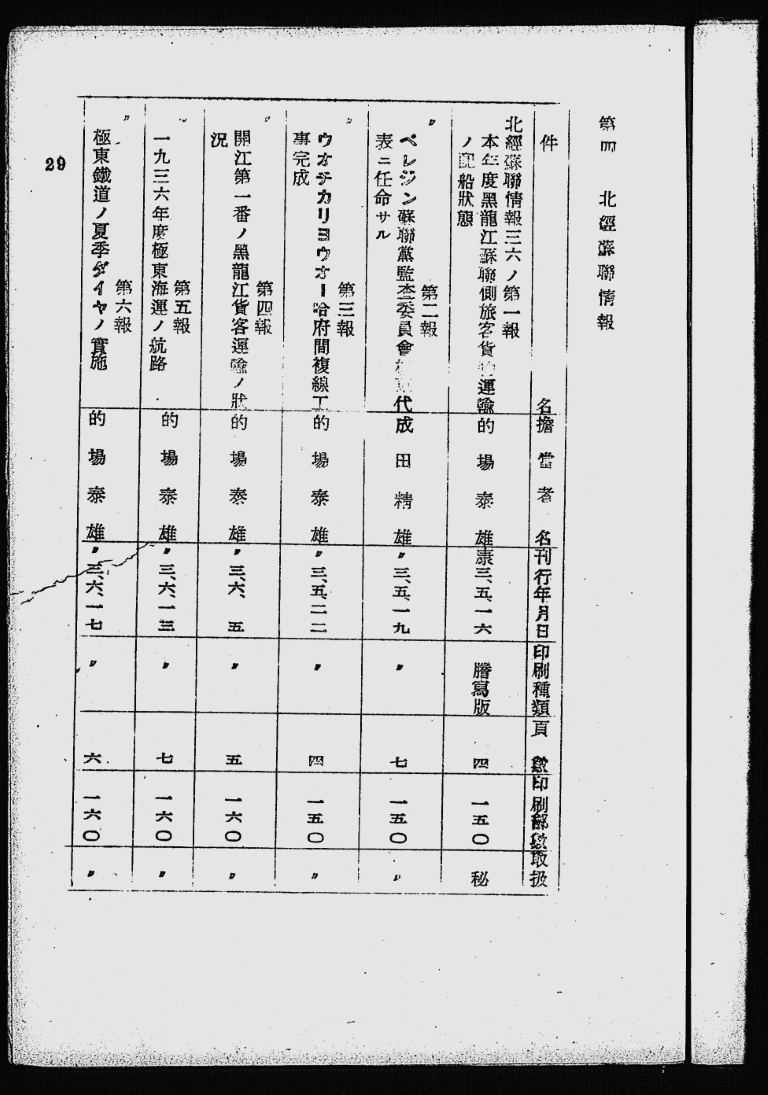 第四 北經蘇聯情報
件名 擔當者名 刊行年月日 印刷種類 頁數 印刷部數 取扱
北經蘇聯情報三六ノ第一報
本年度黑龍江蘇聯側旅客貨 運輸
ノ配船狀態
的場泰雄 康三、五、一六 謄寫版 四 一五〇 秘
〃 第二報
ベレジン蘇聯黨監査委員會 代
表ニ任命サル
成田精雄 〃三、五、一九 〃 七 一五〇 〃
〃 第三報
ウオチカリヨウオー哈府間複線工
事完成
的場泰雄 〃三、五、二二 〃 四 一五〇 〃
〃 第四報
開江第一番ノ黑龍江貨客運輸ノ狀
況
的場泰雄 〃三、六、五 〃 五 一六〇 〃
〃 第五報
一九三六年度極東海運ノ航路
的場泰雄 〃三、六、一三 〃 七 一六〇 〃
〃 第六報
極東鐵道ノ夏季ダイヤノ實施
的場泰雄 〃三、六、一七 〃 六 一六〇 〃
29